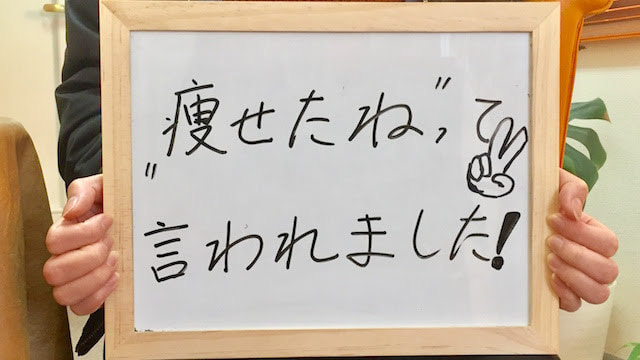 "痩せたね"って
言われました!